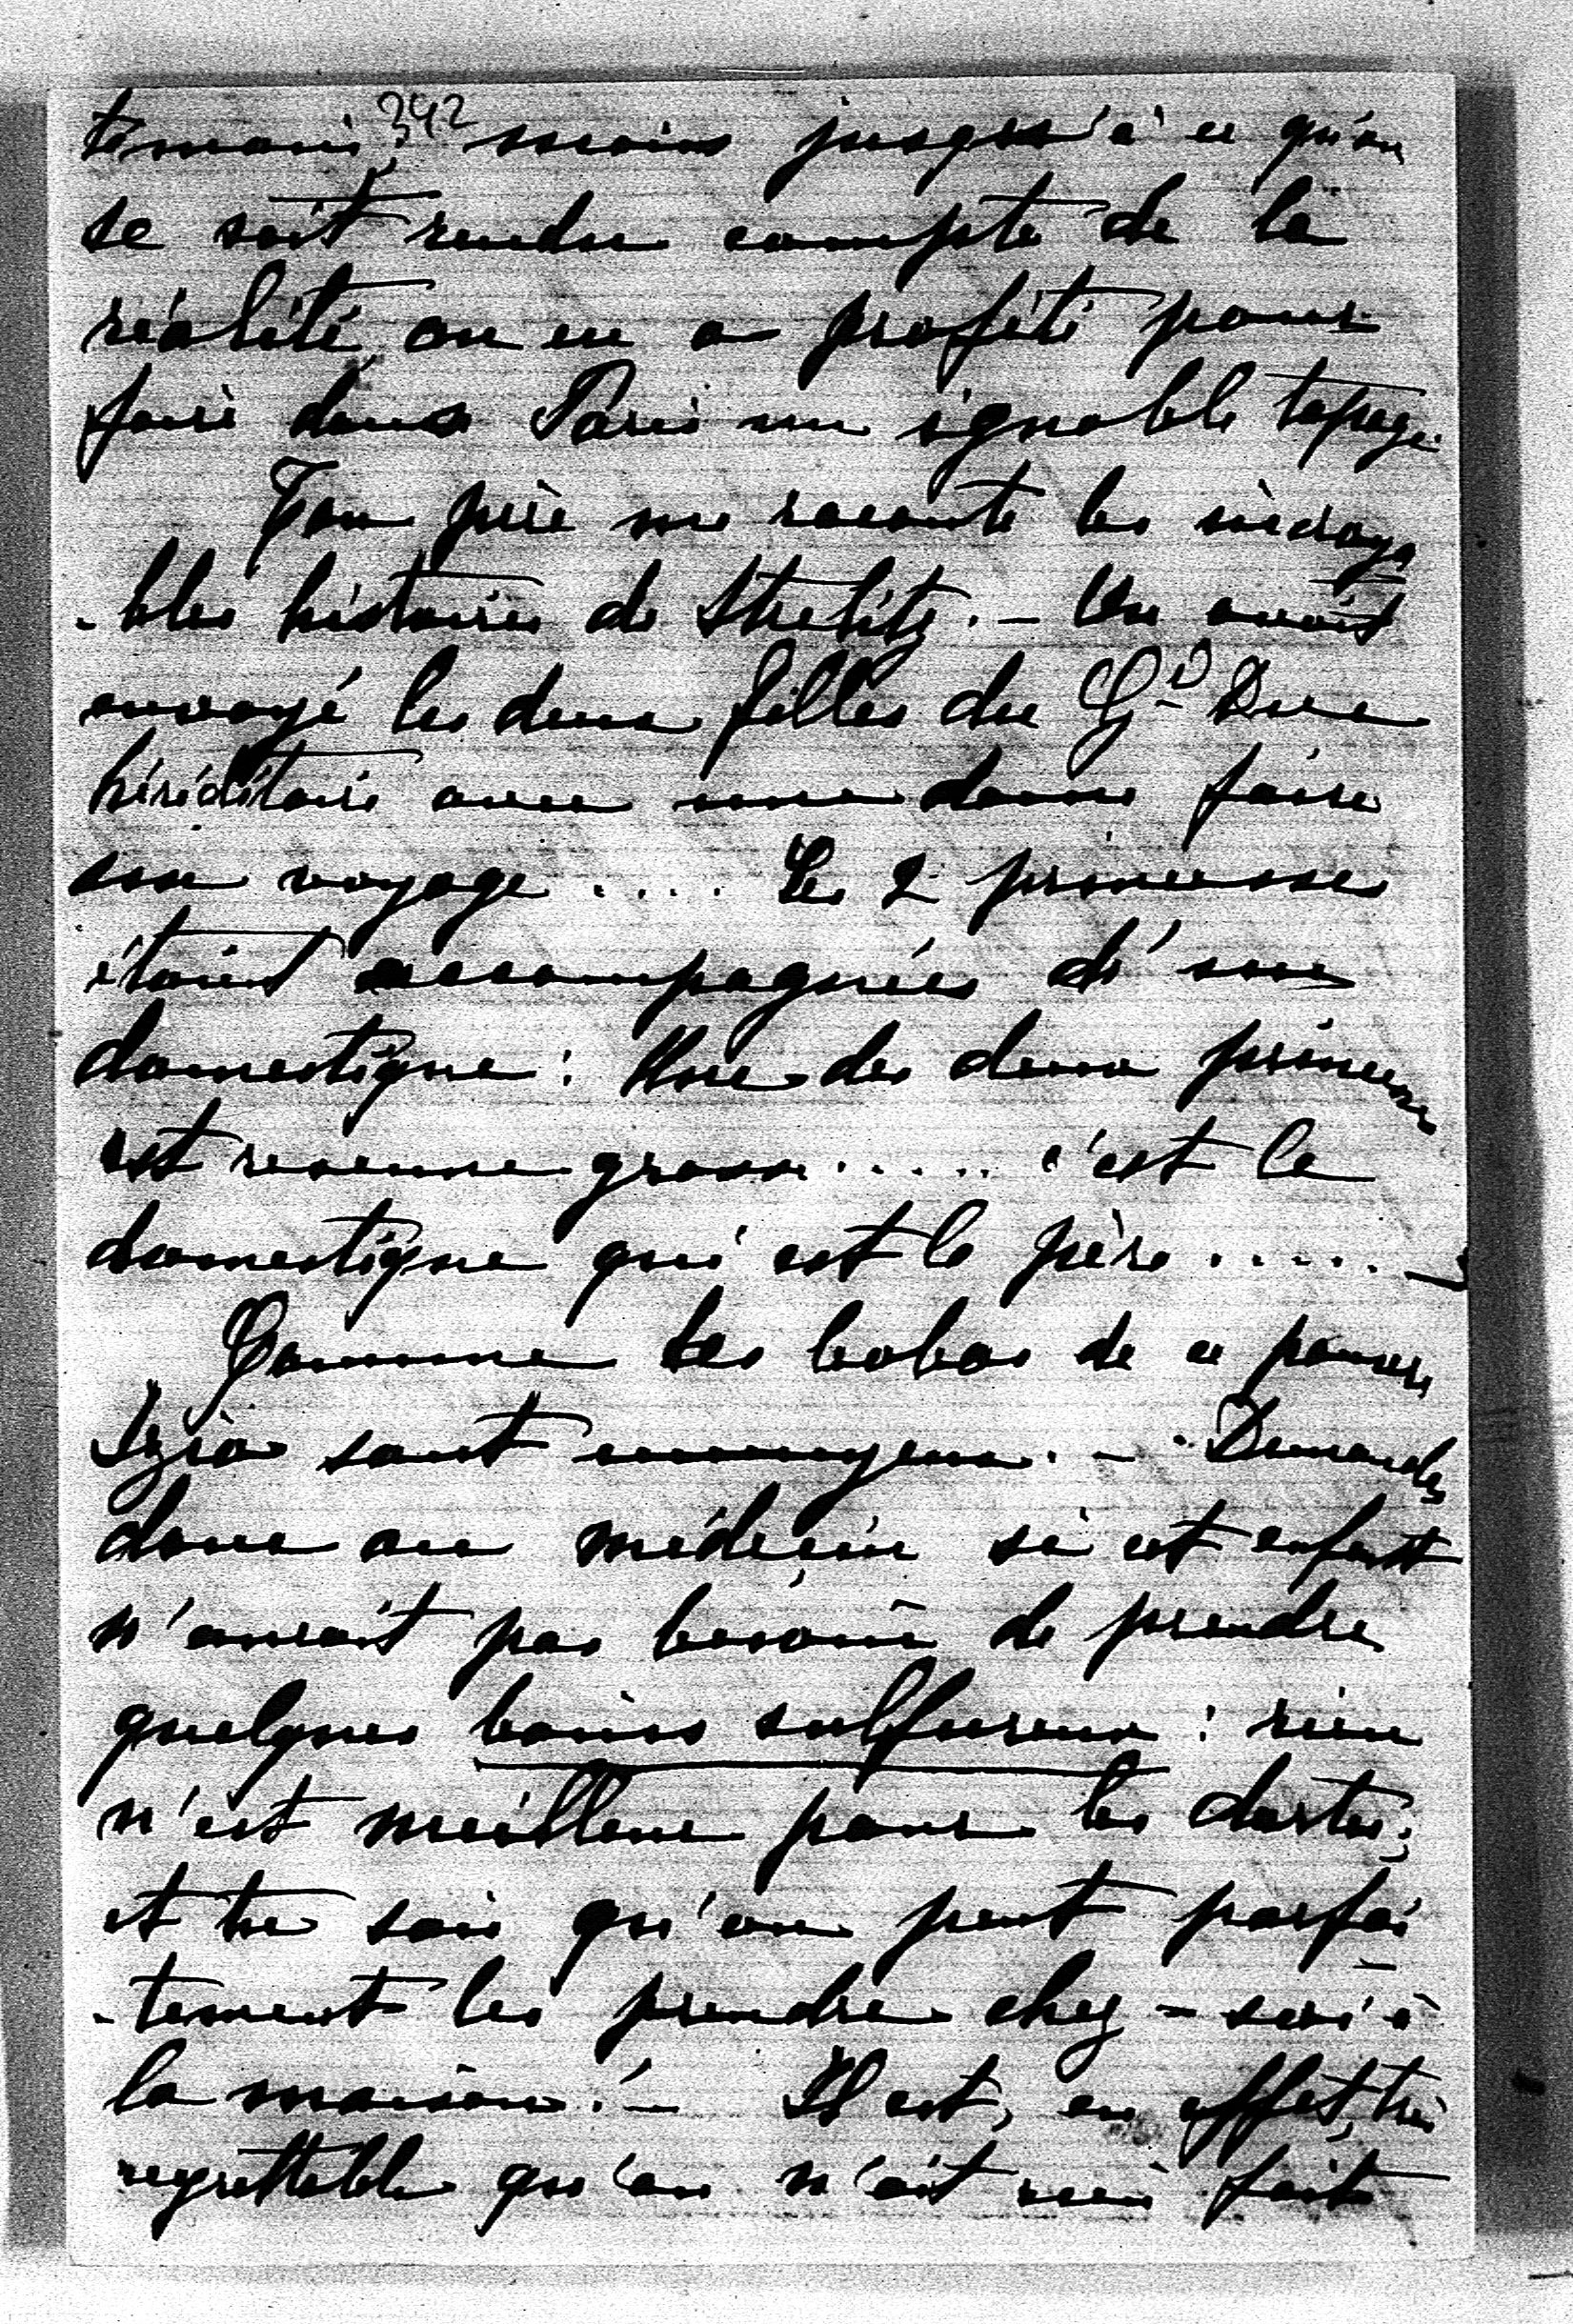 témoin; 342 mais jusqu'à ce qu'on
se soit rendu compte de la
réalité, on en a profité pour
faire dans Paris un ignoble tapage.
Ton père me raconte les incroya
-bles histoires de Strélitz. - On avait
envoyé les deux filles du Gd Duc
héréditaire avec une dame faire
un voyage .... Les 2 princesses
étaient accompagnées d'un
domestique : Une des deux princesses
est revenue grosse ..... c'est le
domestique qui est le père .....
Comme les bobos de ce pauvre
Izia sont ennuyeux. - Demandez
donc au médecin si cet enfant
n'aurait pas besoin de prendre
quelques bains sulfureux : rien
n'est meilleur pour les dartres;
et tu sais qu'on peut parfai
-tement les prendre chez-soi à
la maison ! - Il est, en effet, très
regrettable qu'on n'ait rien fait